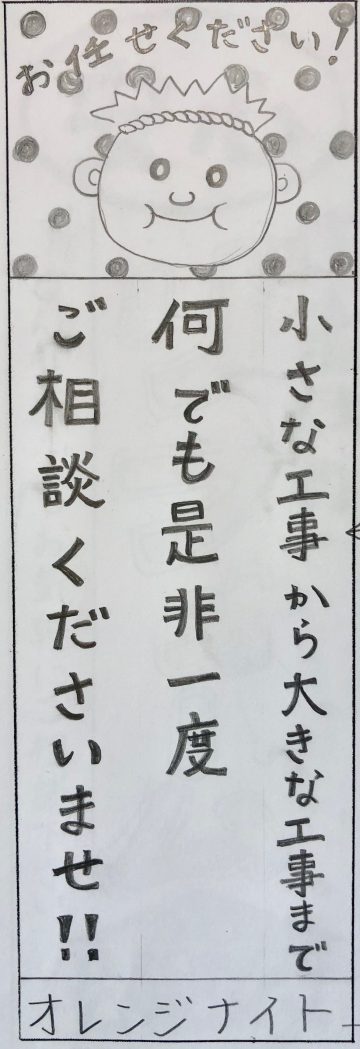 お任せください!
小さな工事から大きな工事まで
何でも是非一度
ご相談くださいませ!!
オレンジナイト